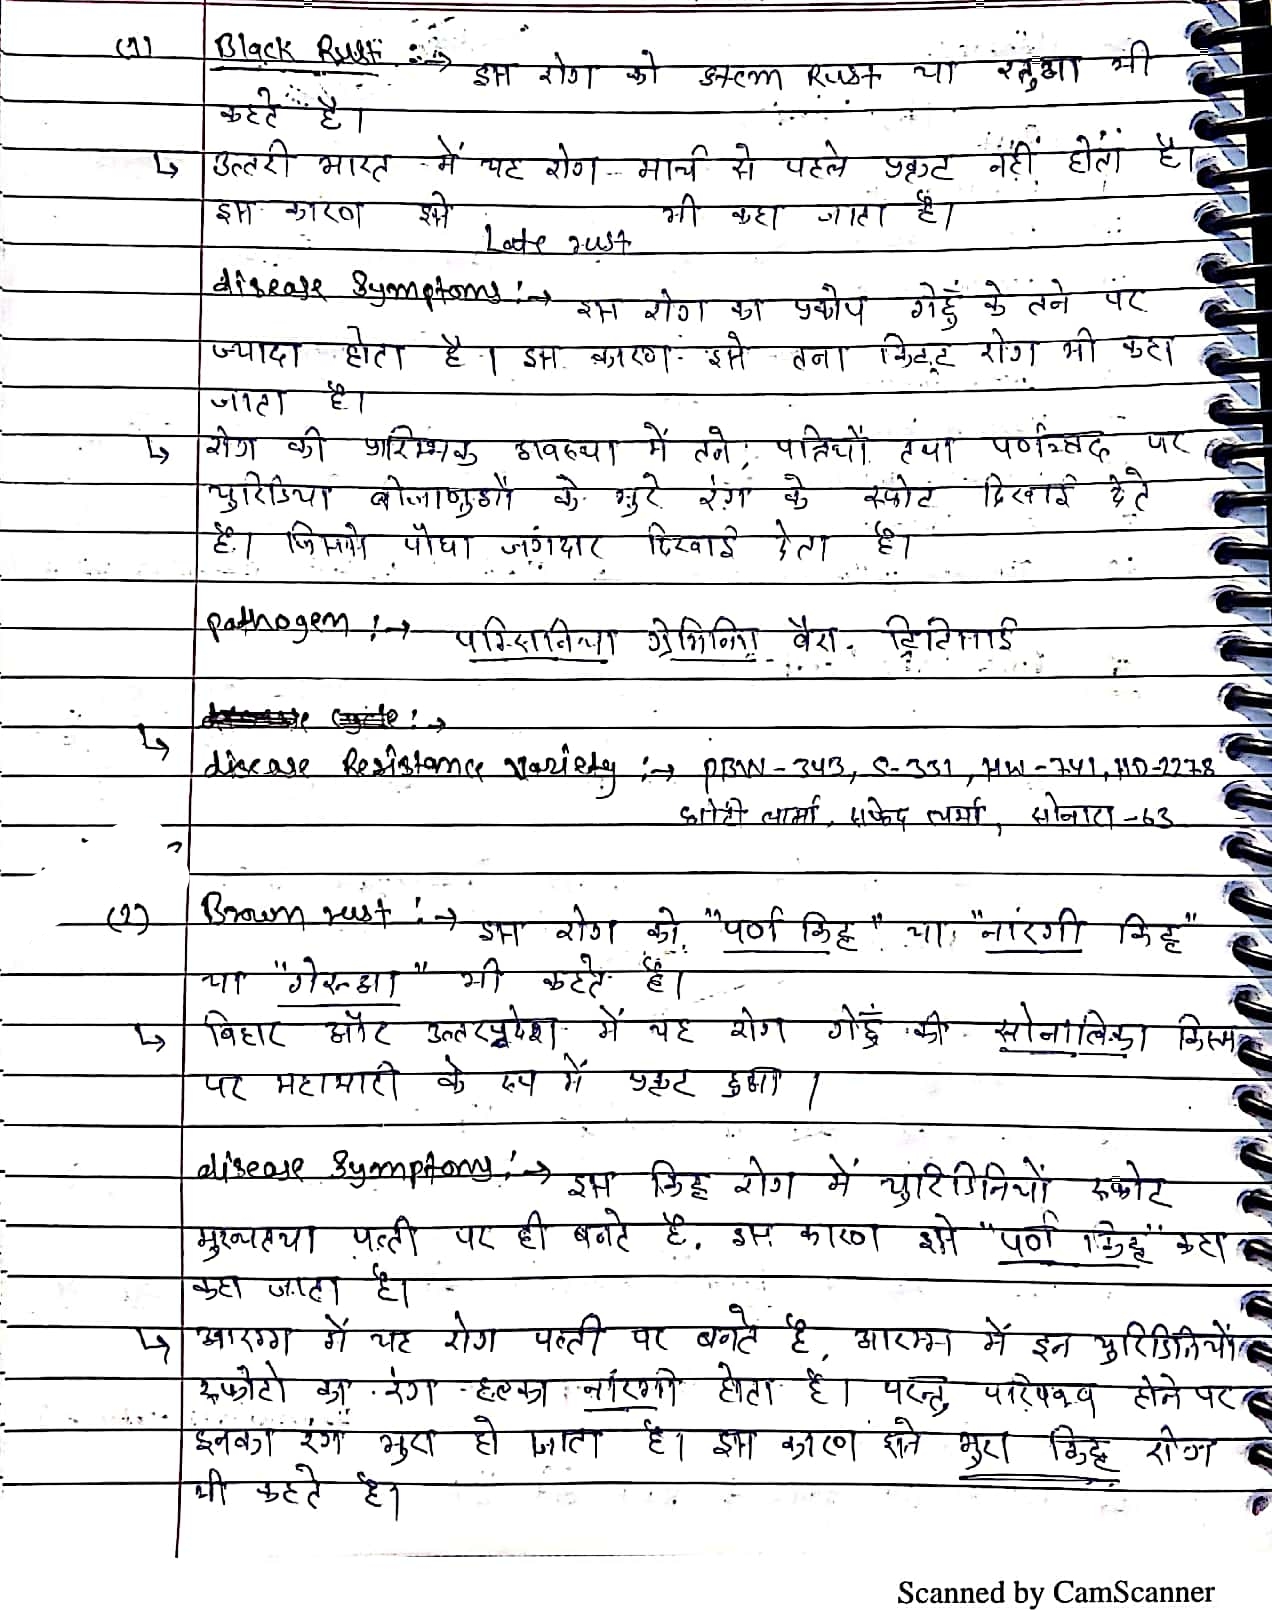 (1) Black Rust :→ इस रोग को stem Rust या रतुआ भी
कहते है।
↳ उत्तरी भारत में यह रोग मार्च से पहले प्रकट नहीं होता है।
इस कारण इसे Late rust भी कहा जाता है।
disease Symptoms :→ इस रोग का प्रकोप गेहुँ के तने पर
ज्यादा होता है। इस कारण इसे तना किट्ट रोग भी कहा
जाता है।
↳ रोग की प्रारम्भिक अवस्था में तने, पत्तियों तथा पर्णच्छद पर
युरिडिया बीजाणुओं के भुरे रंग के स्फोट दिखाई देते
है। जिससे पौधा जंगदार दिखाई देता है।
pathogen :→ पक्सिनिया ग्रेमिनिस वैरा. ट्रिटिसाई
cycle :→
↳ disease Resistance Variety :→ PBW-343, S-331, HW-741, HD-2278
छोटी लर्मा, सफेद लर्मा, सोनारा-63
(2) Brown rust :→ इस रोग को "पर्ण किट्ट" या "नारंगी किट्ट"
या "गेरुआ" भी कहते है।
↳ बिहार और उत्तरप्रदेश में यह रोग गेहुँ की सोनालिका किस्म
पर महामारी के रूप में प्रकट हुआ।
disease Symptoms :→ इस किट्ट रोग में युरिडिनियों स्फोट
मुख्यतया पत्ती पर ही बनते है, इस कारण इसे "पर्ण किट्ट" कहा
कहा जाता है।
↳ आरम्भ में यह रोग पत्ती पर बनते है, आरम्भ में इन युरिडिनियों
स्फोटो का रंग हल्का नांरगी होता है। परन्तु परिपक्व होने पर
इनका रंग भुरा हो जाता है। इस कारण इसे भुरा किट्ट रोग
भी कहते है।
Scanned by CamScanner